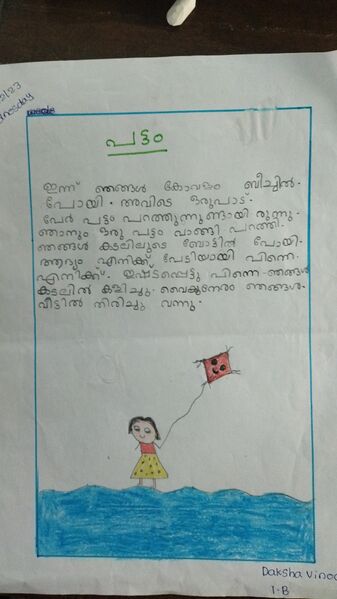 പട്ടം
ഇന്ന് ഞങ്ങൾ കോവളം ബീച്ചിൽ.
പോയി. അവിടെ ഒരുപാട്.
പേർ പട്ടം പറത്തുന്നുണ്ടായി രുന്നു.
ഞാനും ഒരു പട്ടം വാങ്ങി പറത്തി.
ഞങ്ങൾ കടലിലൂടെ ബോട്ടിൽ പോയി.
ആദ്യം എനിക്ക് പേടിയായി പിന്നെ.
എനിക്ക്. ഇഷ്ടപ്പെട്ടു പിന്നെ ഞങ്ങൾ
കടലിൽ കളിച്ചു. വൈകുന്നേരം ഞങ്ങൾ.
വീട്ടിൽ തിരിച്ചു വന്നു.
Daksha Vinod
1-B